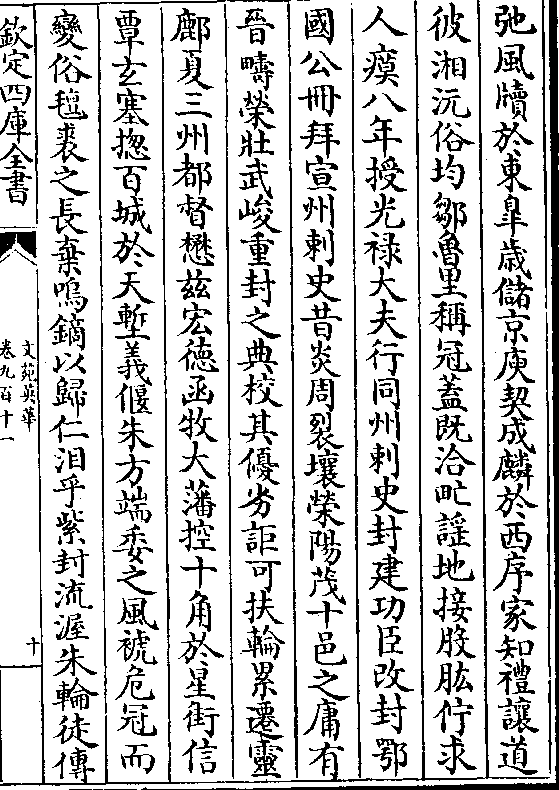 弛風牘於東臯歳儲京庾契成麟於西序家知禮讓道
彼湘沅俗均鄒魯里稱冠葢既洽甿謡地接股肱佇求
人瘼八年授光禄大夫行同州刺史封建功臣改封鄂
國公冊拜宣州刺史昔炎周裂壤榮陽茂十邑之庸有
晉疇榮壯武峻重封之典校其優劣詎可扶輪累遷靈
鄜夏三州都督懋兹宏德函牧大藩控十角於星街信
覃玄塞揔百城於天塹義偃朱方端委之風褫危冠而
變俗氊裘之長棄鳴鏑以歸仁洎乎紫封流渥朱輪徒傳
欽定四庫全書
文苑英華
卷九百十一
十